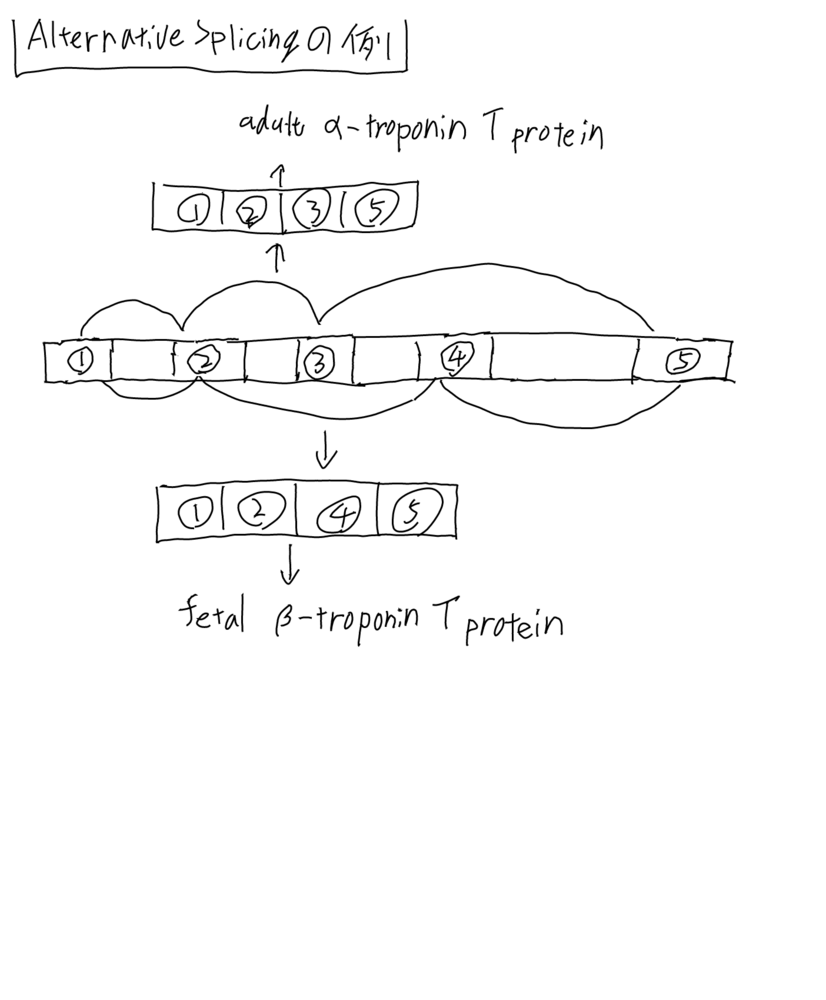 Alternative Splicingの例
adult α-troponin T protein
① ② ③ ⑤
① ② ③ ④ ⑤
① ② ④ ⑤
fetal β-troponin T protein